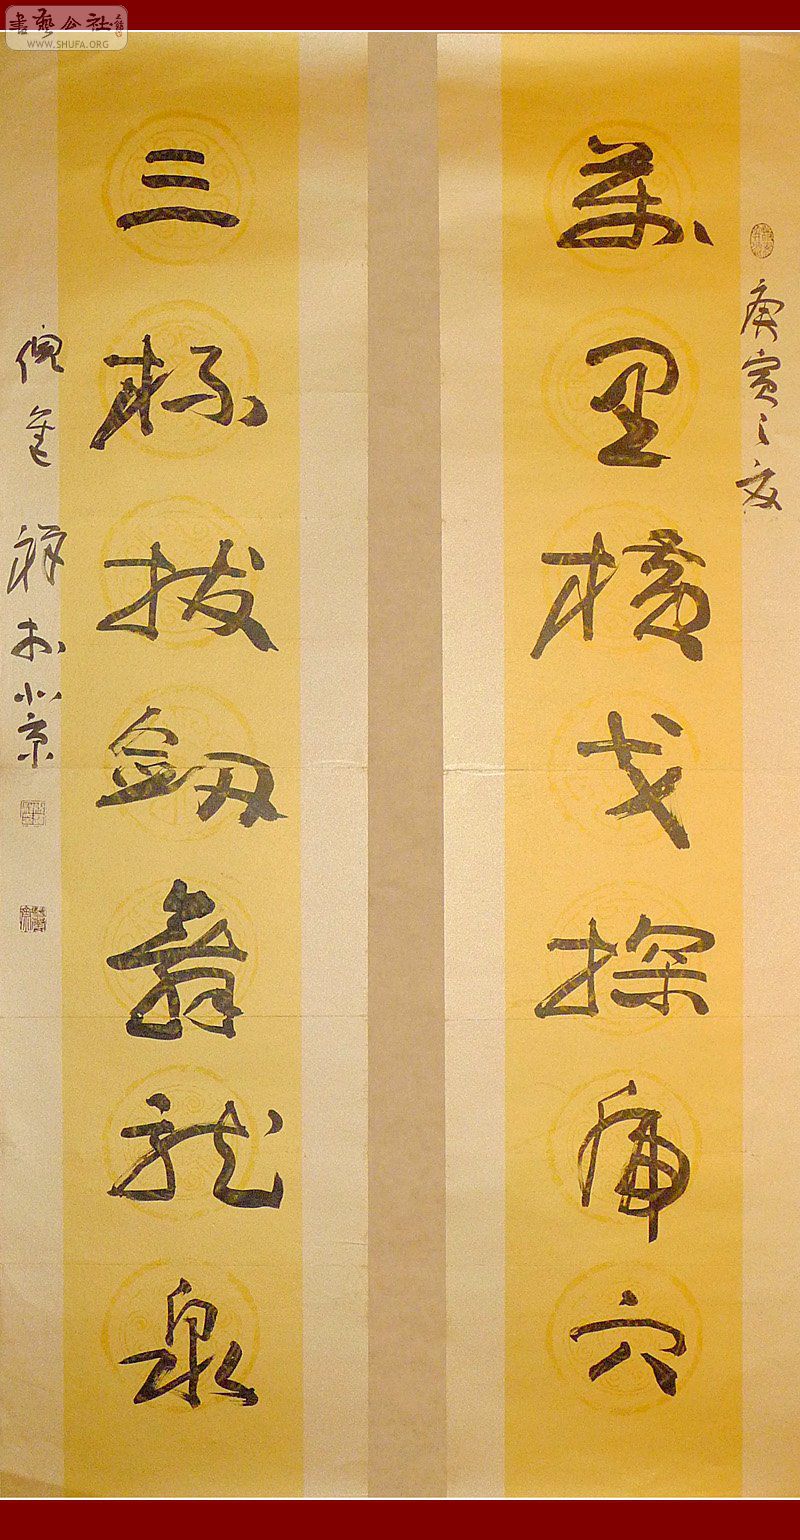 書藝公社
WWW.SHUFA.ORG
庚寅之夏
萬里橫戈探虎穴
三杯拔劍舞龍泉
於北京